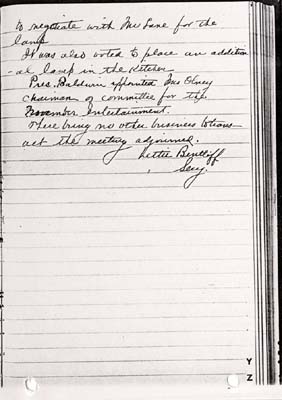 to negotiate with Mr Lane for the
lamp
It was also voted to place an addition
-al lamp in the Kitchen
Pres. Baldwin appointed Mrs Olney
chairman of committee for the
November Entertainment.
There being no other business to trans-
act the meeting adjourned.
Lettie Bentliff
Secy.
Y
Z